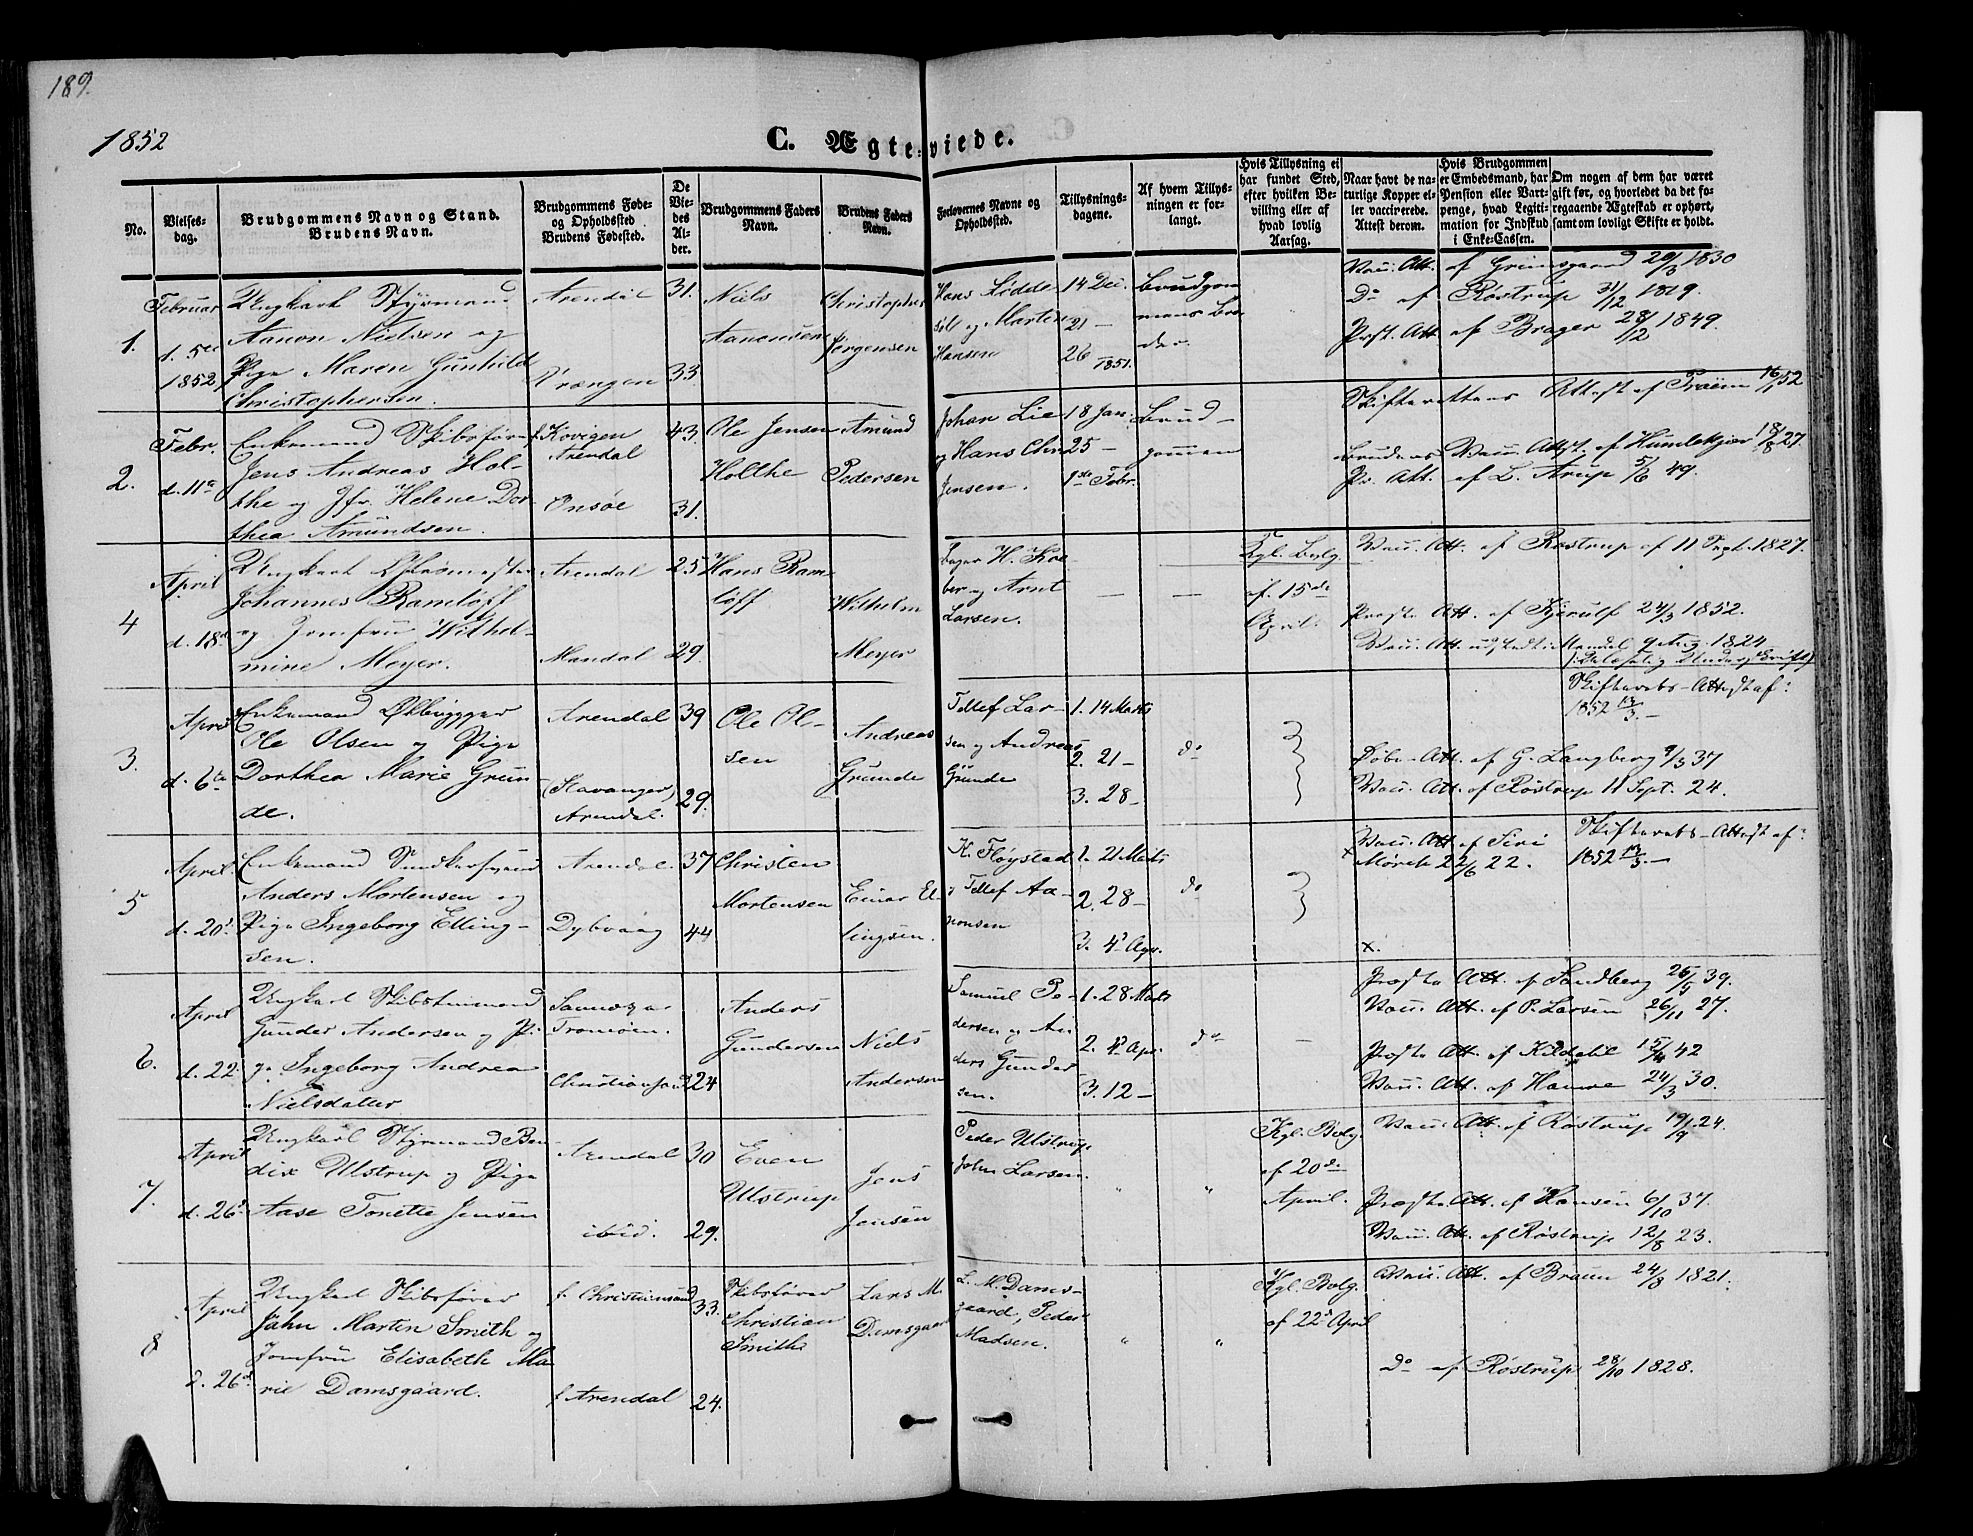 189.
1852
C. Ægte-viede.
No.
Vielses-
dag.
Brudgommens Navn og Stand.
Brudens Navn.
Brudgommens Føde-
og Opholdssted
Brudens Fødested.
De
Vie-
des
Al-
der.
Brudgommens Faders
Navn.
Brudens Faders
Navn.
Forlovernes Navne og
Opholdssted.
Tillysnings-
dagene.
Af hvem Tillys-
ningen er for-
langt.
Hvis Tillysning ei
har fundet Sted,
efter hvilken Be-
villing eller af
hvad lovlig
Aarsag.
Naar havt de na-
turlige Kopper el-
ler vaccinerede.
Attest derom.
Hvis Brudgommen
er Embedsmand, har
Pension eller Vart-
penge, hvad Legiti-
mation for Indskud
i Enke-Cassen.
Om nogen af dem har været
gift før, og hvorledet da det fo-
regaaende Ægteskab er ophørt,
samt om lovligt Skifte er holdt.
1.
Februar
d. 5te
1852
Ungkarl Styrmand
Aanon Nielsen og
Pige Maren Gunhild
Christophersen.
Arendal
31.
33.
Niels
Aanonsen
Christopher
Jørgensen
Hans
og Morten
Hansen
14 Dec.
21 —
26
1851.
Brudgom
mens Bro
der.
Vacc. Att. af Grimsgaard 29/3 1830
Do af Røstrup 31/12 1819.
Præst. Att. af Brager 28/2 1849.
2.
Febr.
d. 11te
Enkemand Skibsfører
Jens Andreas Hol-
the og Jfr. Helene Dor-
thea Amundsen.
Arendal
Onsøe
43.
31.
Ole Jensen
Holthe
Amund
Pedersen
Johan Lie
og Hans Chr.
Jensen.
18 Jan.
25 —
1ste Febr.
Brud-
gommen
Skifterettens Attest af 16/1 52.
Brudens Vacc. Attst. af Humlekjær 18/8 27.
Pr. Att. af L. Strup 5/6 49.
4
April
d. 18de
Ungkarl
Johannes Ramløff
og Jomfru Wilhel-
mine Meyer.
Arendal
Mandal
25
29.
Hans Ram
løff
Wilhelm
Meyer
H. Koe
ber og Arnt
Larsen.
Kgl. Bevlg.
af 15de
April.
Vacc. Att. af Røstrup af 11 Sept. 1827.
Præste Att. af Kjerulf 24/3 1852.
Vacc. Att. udstedt i Mandal 9 Aug. 1824
3.
April
d. 6te
Enkemand Ølbrygger
Ole Olsen og Pige
Dorthea Marie Grun-
de.
Arendal
(Stavanger)
Arendal.
39
29.
Ole Ol-
sen
Andreas
Grunde
Tellef Lar-
sen og Andreas
Grunde
1. 14 Marts
2. 21 —
3. 28 —
do
Skifterets-Attest af
1852 13/3. —
Døbe-Att. af G. Langberg 9/3 37
Vacc. Att. af Røstrup 11 Sept. 24.
5
April
d. 20de
Enkemand
Anders Mortensen og
Pige Ingeborg Elling-
sen.
Arendal.
Dybvaag
37
44
Christen
Mortensen
Einar El-
lingsen.
K. Fløystad
og Tellef Aa-
nonsen
1. 21 Marts
2. 28 —
3. 4de Apr.
do
x
Vacc. Att. af Siri
Mörch 22/6 22.
x.
Skifterets-Attest af
1852 13/3. —
6.
April
d. 22.
Ungkarl Skibstømmermand
Gunder Andersen og Pi-
ge Ingeborg Andrea
Nielsdatter
Tromøen.
Christiansand
24
Anders
Gundersen
Niels
Andersen
Samuel Pe-
dersen og An
ders Gunder
sen.
1. 28 Marts
2. 4de Apr.
3. 12 —
do
—
Præste Att. af Sandberg 26/5 39.
Vacc. Att. af P. Larsen 26/11 27.
Præste Att. af Kildahl 15/4 42
Vacc. Att. af Hamre 24/3 30.
7.
April
d. 26de
Ungkarl Styrmand Ben
dix Ulstrup og Pige
Aase Tonette Jensen
Arendal
ibid.
30
29.
Even
Ulstrup
Jens
Jensen
Peder Ulstrup
John Larsen.
"
"
Kgl. Bvlg.
af 20de
April.
Vacc. Att. af Røstrup 19/9 24.
Præste Att. af Hansen 6/10 37.
Vacc. Att. af Røstrup 12/8 23.
8
April
d. 26de
Ungkarl Skibsfører
John Morten Smith og
Jomfru Elisabeth Ma
rie Damsgaard.
f. Christiansand
f. Arendal
33.
24.
Skibsfører
Christian
Smith
Lars M.
Damsgaard
L. M. Dams-
gaard, Peder
Madsen.
"
"
Kgl. Bvlg.
af 22de April
Vacc. Att. af Bruun 24/8 1821.
do af Røstrup 28/10 1828.